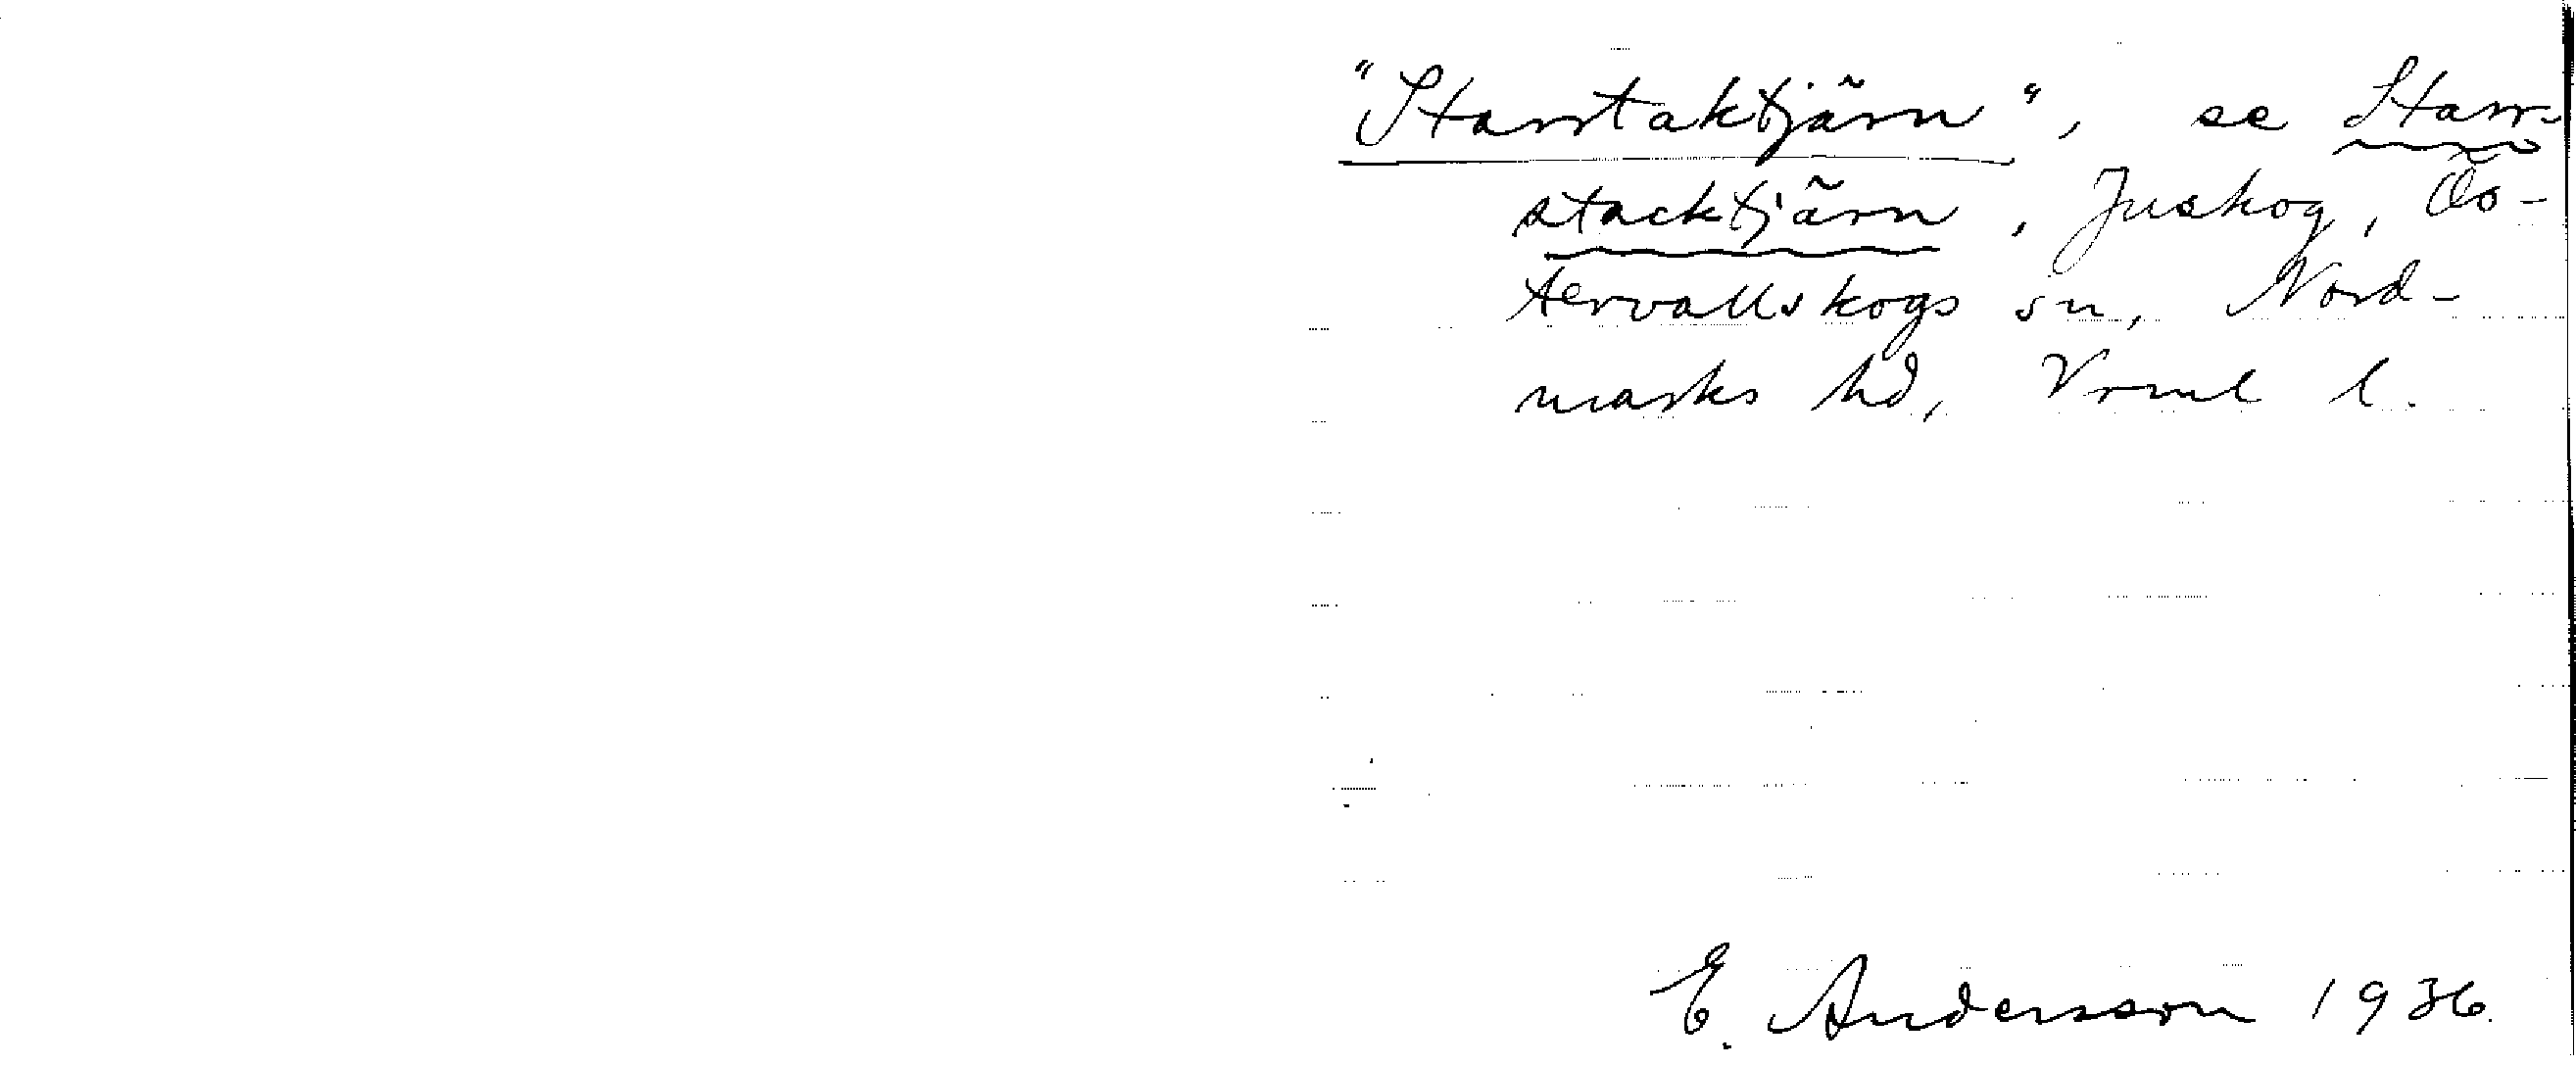 "Starrtaktjärn", se Starr-
stacktjärn, Juskog, Ös-
tervallskogs sn, Nord-
marks hd, Vrml l.
E. Andersson 1936.